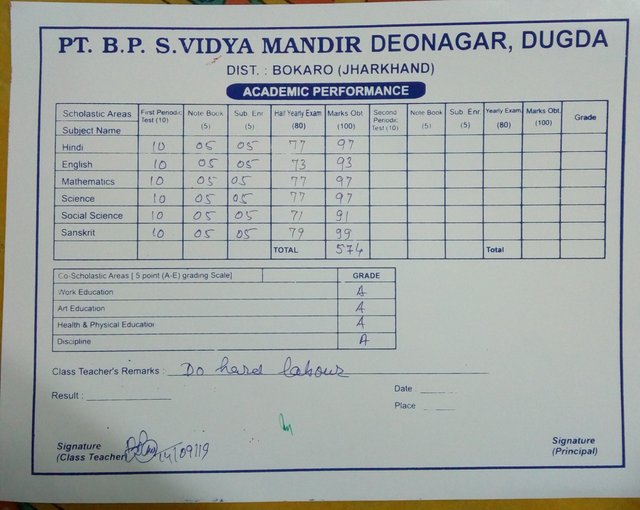 PT. B.P. S.VIDYA MANDIR DEONAGAR, DUGDA
DIST. : BOKARO (JHARKHAND)
ACADEMIC PERFORMANCE
Scholastic Areas First Periodic Test (10) Note Book (5) Sub. Enr. (5) Half Yearly Exam (80) Marks Obt. (100) Second Periodic Test (10) Note Book (5) Sub. Enr. (5) Yearly Exam. (80) Marks Obt. (100) Grade
Subject Name
Hindi 10 05 05 77 97
English 10 05 05 73 93
Mathematics 10 05 05 77 97
Science 10 05 05 77 97
Social Science 10 05 05 71 91
Sanskrit 10 05 05 79 99
TOTAL 574 Total
Co-Scholastic Areas [ 5 point (A-E) grading Scale] GRADE
Work Education A
Art Education A
Health & Physical Education A
Discipline A
Class Teacher's Remarks : Do hard labour
Result :
Date :
Place
Signature
(Class Teacher) 14/09/19
Signature
(Principal)